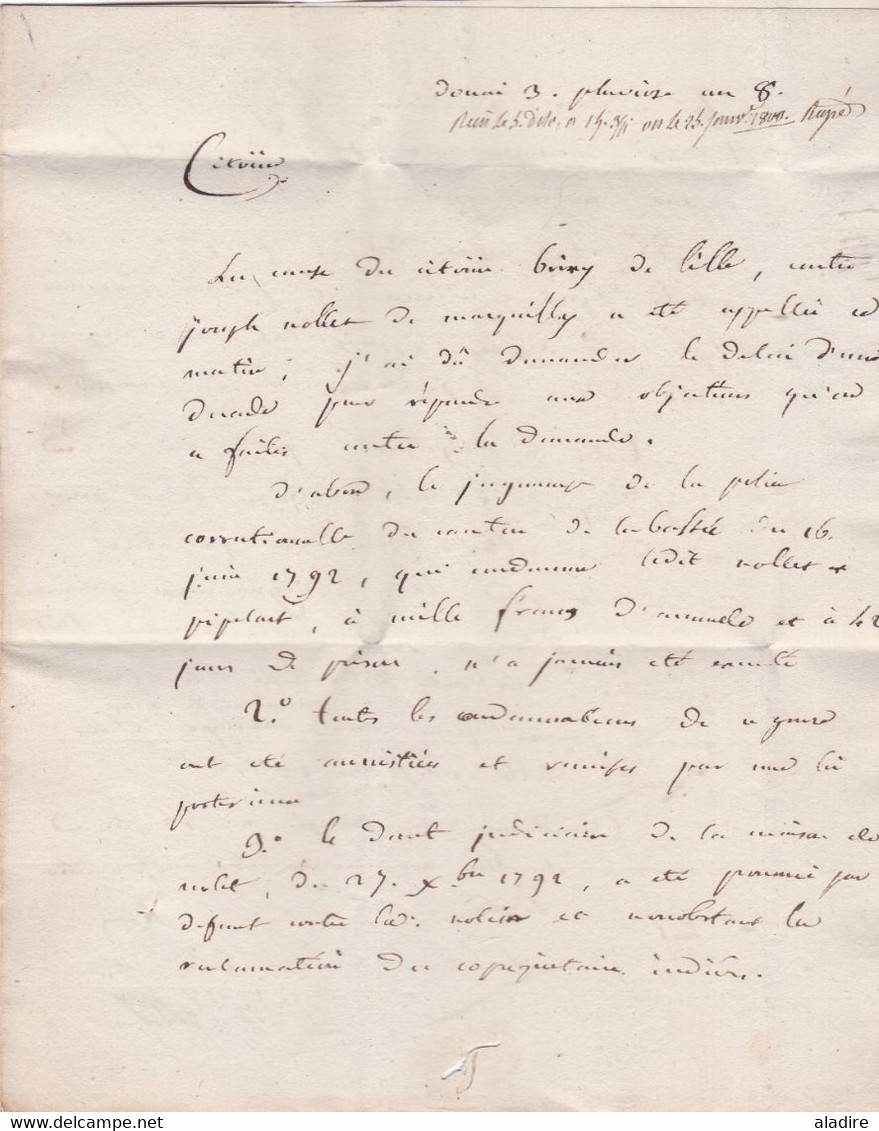 Douai 3. pluviose an 8.
Reçu le 5. dito, ou le 25. janv.r 1800.
Citoïen
La cause du citoïen Béevy de lille, contre
joseph nollet de marquillies a été appellée ce
matin ; j'ai dû demander le delai d'une
decade pour répondre aux objections qu'on
a faites contre la demande.
D'abord, le jugement de la police
correctionnelle du canton de labassée du 16.
juin 1792, qui condamne ledit nollet et
, à mille francs d'amende et à 42
jours de prison, n'a jamais été executé
2.º toutes les condamnations de ce genre
ont été amnistiées et remises par une loi
posterieure
3.º le decret judiciaire de la maison de
nolet, du 27. xbre 1792, a été prononcé par
defaut contre led. nolet et nonobstant la
reclamation du coproprietaire indivis.
aladire